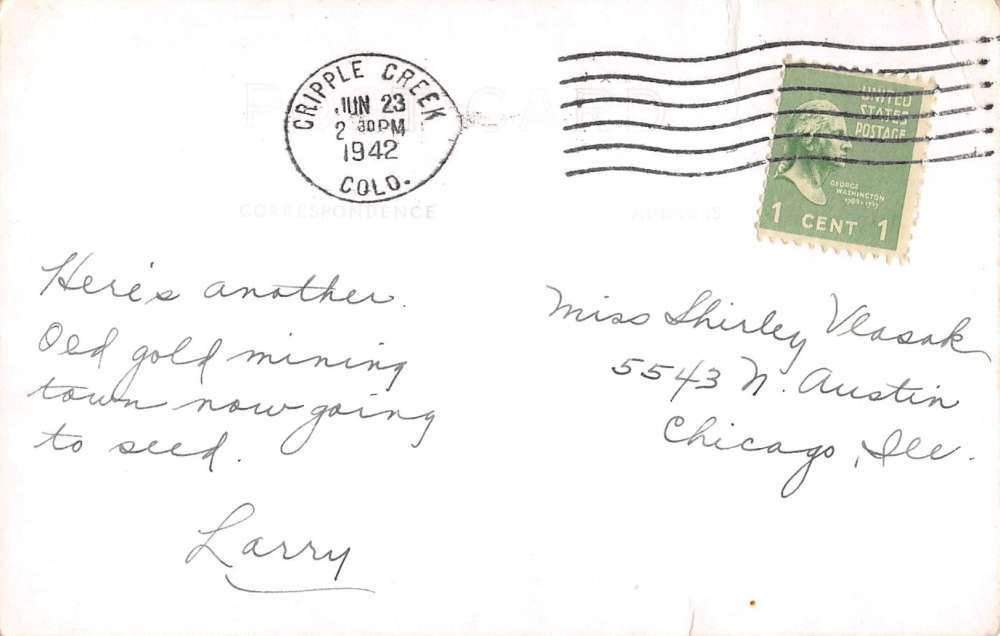 POST CARD
CRIPPLE CREEK
JUN 23
2 30 PM
1942
COLO.
UNITED
STATES
POSTAGE
GEORGE
WASHINGTON
1789-1797
1 CENT 1
CORRESPONDENCE
ADDRESS
Here's another.
Old gold mining
town now going
to seed.
Larry
Miss Shirley Vlasak
5543 N. Austin
Chicago, Ill.